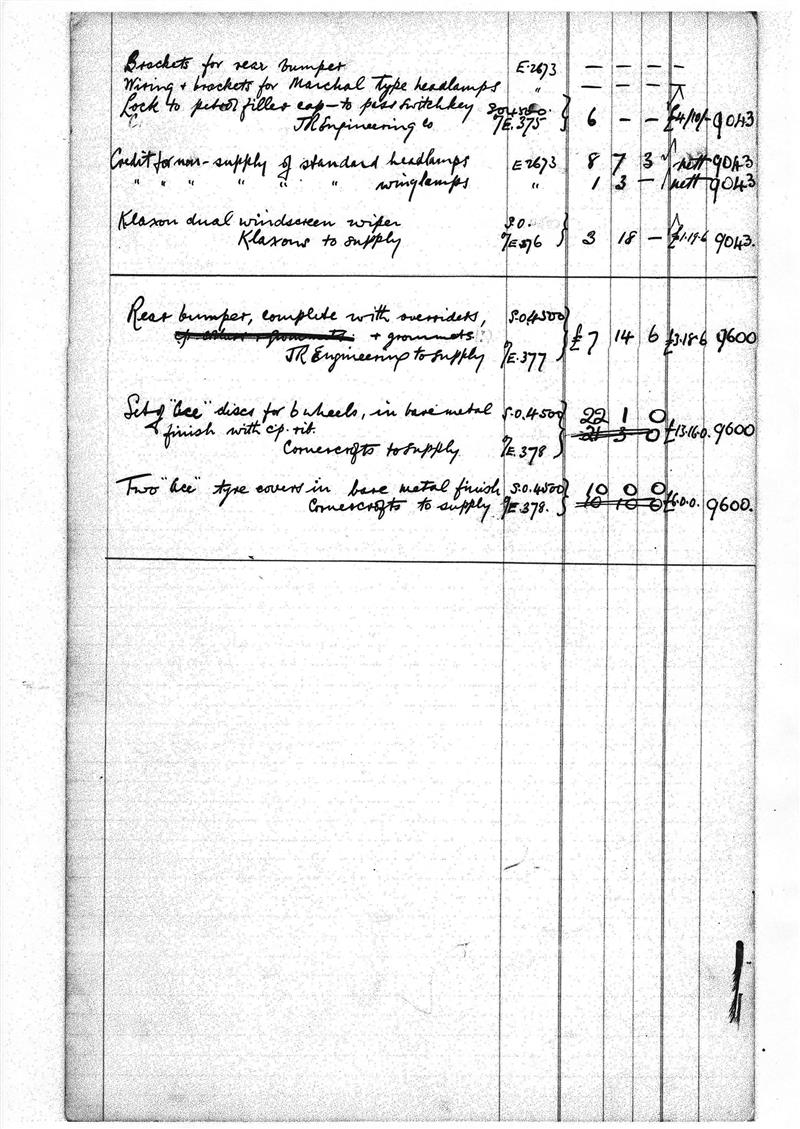 Brackets for rear bumper E.2673 — — — —
Wiring + brackets for Marchal Type headlamps " — — — —
Lock to petrol filler cap — to pass switchkey S.O.4500. } 6 — — £4/10/- 9043
JR Engineering Co %E.375
Credit for non-supply of standard headlamps E2673 8 7 3 nett 9043
" " " " " " winglamps " 1 3 — nett 9043
Klaxon dual windscreen wiper S.O. } 3 18 — £1.19.6 9043.
Klaxons to supply %E.376
Rear bumper, complete with overriders, S.O.4500 } £7 14 6 £3.18.6 9600
+ grommets
JR Engineering to supply %E.377
Set of "Ace" discs for 6 wheels, in bare metal S.O.4500 } 22 1 0
& finish with cp. rib. 21 3 0 £13.16.0. 9600
Cornercrofts to supply %E.378
Two "Ace" tyre covers in bare metal finish S.O.4500 } 10 0 0
Cornercrofts to supply %E.378. 10 10 0 £6.0.0. 9600.